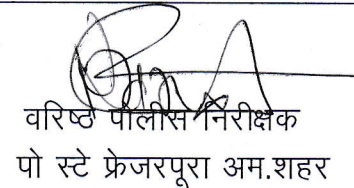 वरिष्ठ पोलीस निरीक्षक
पो स्टे फ्रेजरपूरा अम.शहर